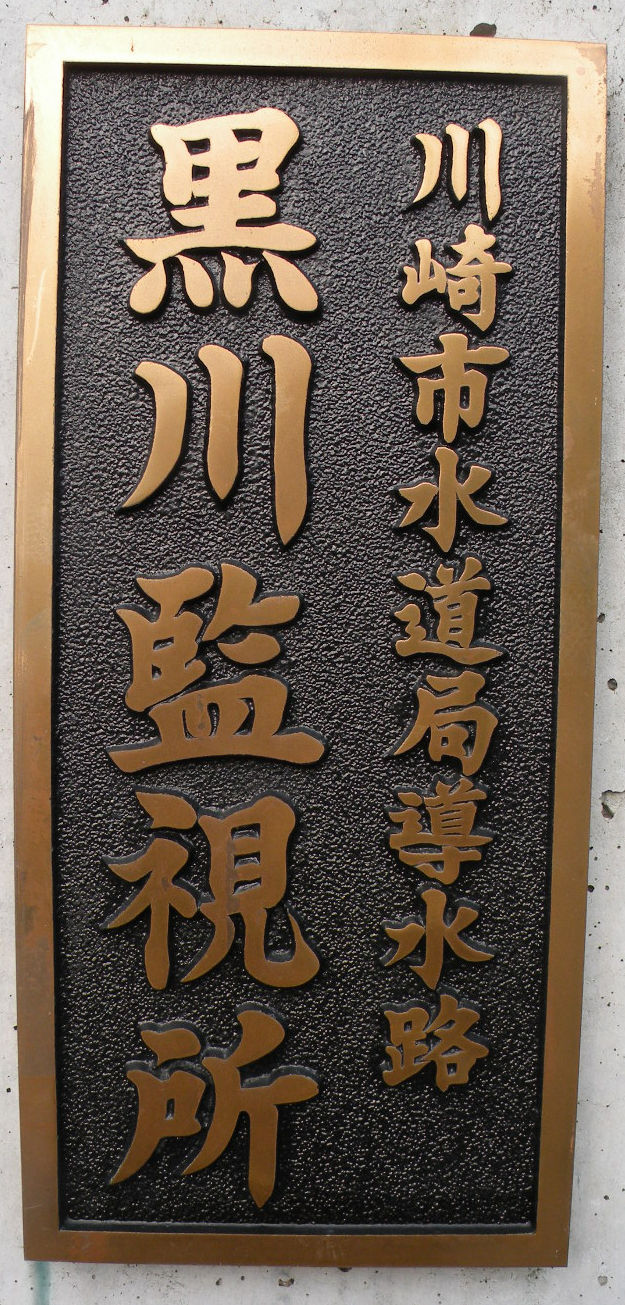 川崎市水道局導水路
黒川監視所